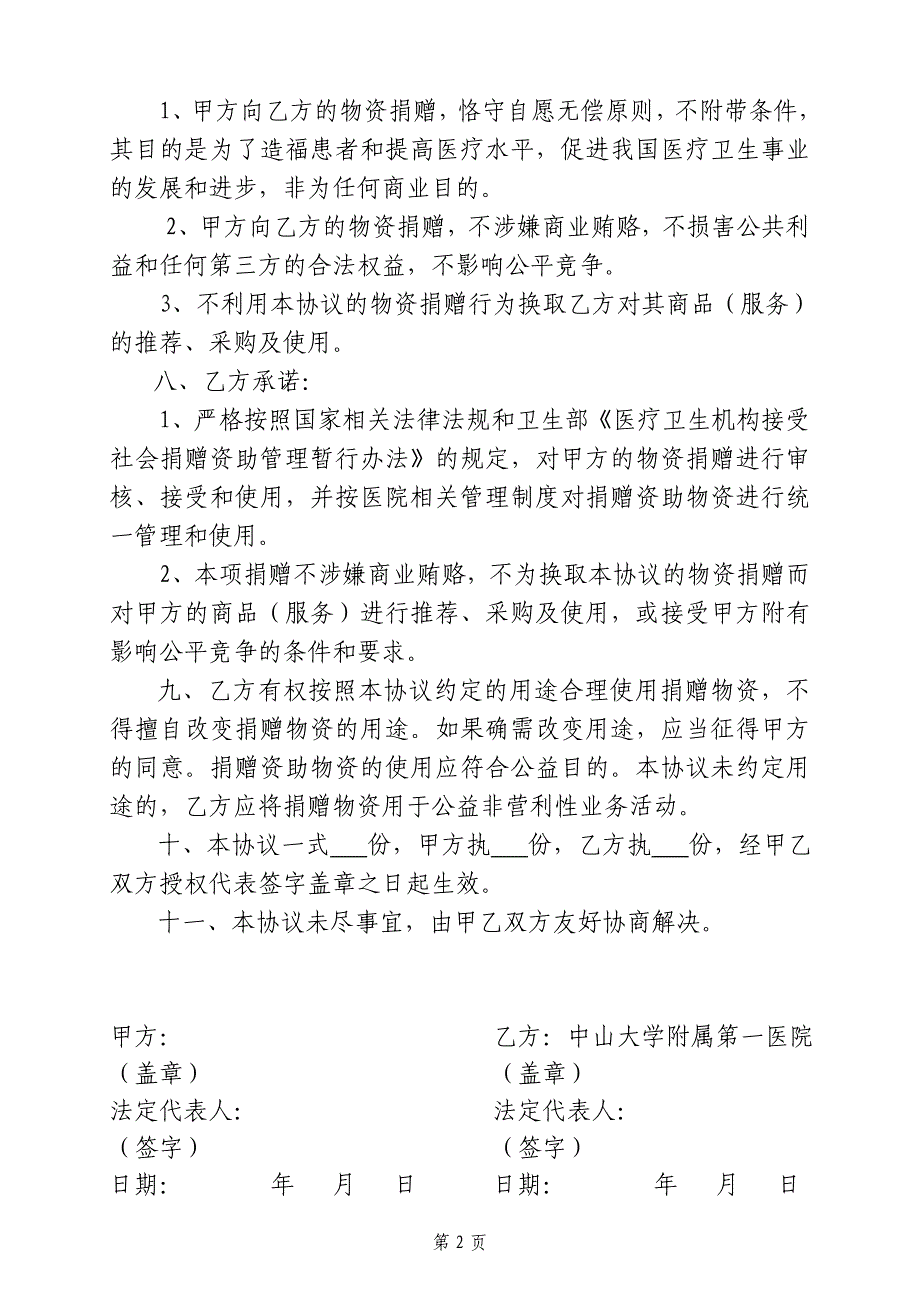 1、甲方向乙方的物资捐赠，恪守自愿无偿原则，不附带条件，
其目的是为了造福患者和提高医疗水平，促进我国医疗卫生事业
的发展和进步，非为任何商业目的。
2、甲方向乙方的物资捐赠，不涉嫌商业贿赂，不损害公共利
益和任何第三方的合法权益，不影响公平竞争。
3、不利用本协议的物资捐赠行为换取乙方对其商品（服务）
的推荐、采购及使用。
八、乙方承诺：
1、严格按照国家相关法律法规和卫生部《医疗卫生机构接受
社会捐赠资助管理暂行办法》的规定，对甲方的物资捐赠进行审
核、接受和使用，并按医院相关管理制度对捐赠资助物资进行统
一管理和使用。
2、本项捐赠不涉嫌商业贿赂，不为换取本协议的物资捐赠而
对甲方的商品（服务）进行推荐、采购及使用，或接受甲方附有
影响公平竞争的条件和要求。
九、乙方有权按照本协议约定的用途合理使用捐赠物资，不
得擅自改变捐赠物资的用途。如果确需改变用途，应当征得甲方
的同意。捐赠资助物资的使用应符合公益目的。本协议未约定用
途的，乙方应将捐赠物资用于公益非营利性业务活动。
十、本协议一式___份，甲方执___份，乙方执___份，经甲乙
双方授权代表签字盖章之日起生效。
十一、本协议未尽事宜，由甲乙双方友好协商解决。
甲方： 乙方：中山大学附属第一医院
（盖章） （盖章）
法定代表人： 法定代表人：
（签字） （签字）
日期： 年 月 日 日期： 年 月 日
第 2 页